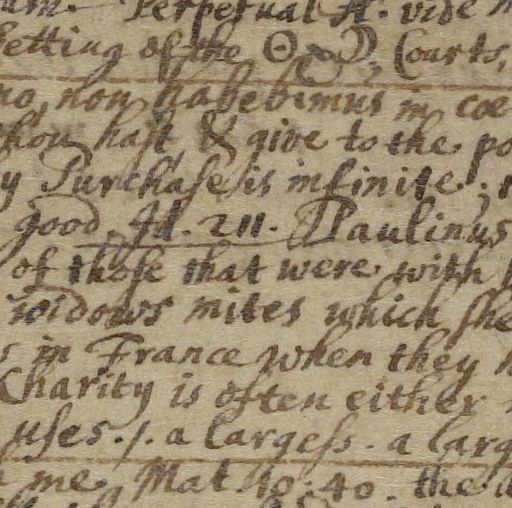 Perpetual A: vide
setting of the ☉ & ☽, Courts,
non habebimus in coe
thou hast & give to the po
y Purchase is infinite;
good. Id. 211. Paulinus
of those that were with
widows mites which she
in France when they h
Charity is often either
uses. /. a largess. a larg
me, Mat 10:40. the